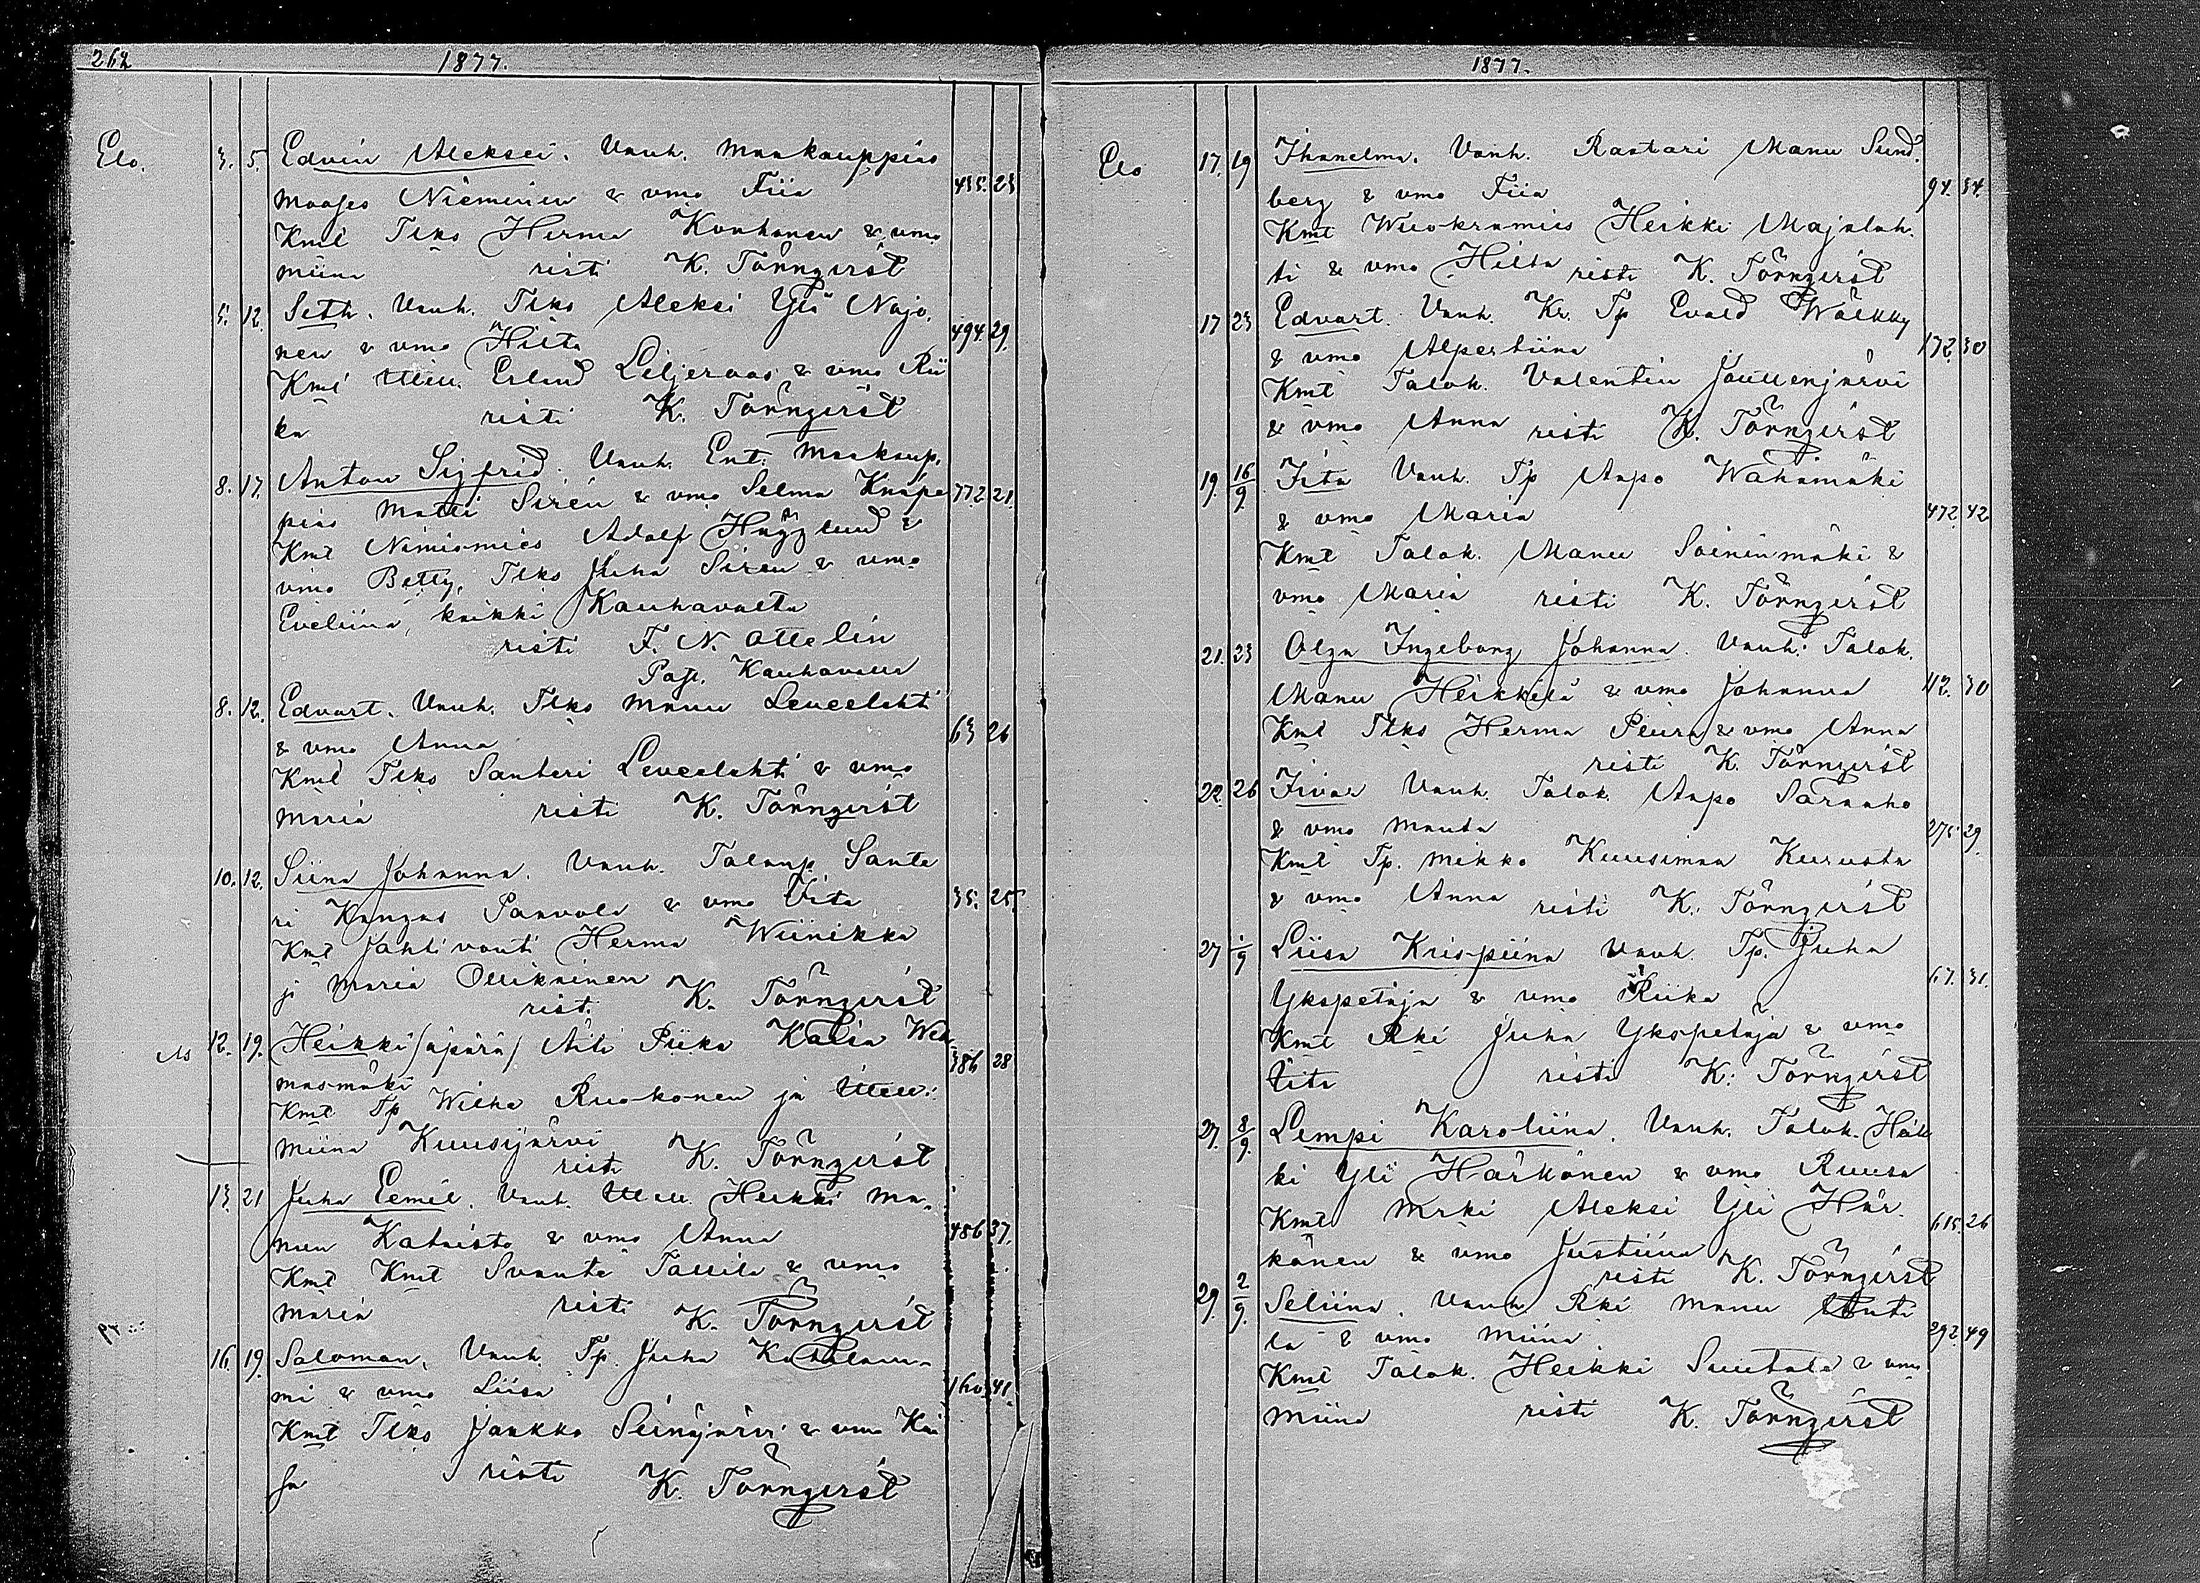 262 1877.
Elo. 3. 5. Edvin Aleksei. Vanh. Maakauppias
Moases Nieminen & vmo Fiia 435. 23
Kmt Tlks Herma Konhonen & vmo
Miina risti K. Törnqvist
5. 12. Seth. Vanh. Tlks Aleksi Yli Najo,
nen & vmo Hilta 494. 29.
Kmt Erland Liljeroos & vmo Rii
ka risti K. Törnqvist
8. 17. Anton Sigfrid. Vanh. Ent. Maakaup,
pias Matti Sirén & vmo Selma Knape 772. 21.
Kmt Nimismies Adolf Hägglund &
vmo Betty, Tlks Juha Siren & vmo
Eveliina, kaikki Kauhavalta
risti F. N. Ottelin
Past. Kauhavalla
8. 12. Edvart. Vanh. Tlks Manu Leveelahti
& vmo Anna 63 26
Kmt Tlks Santeri Leveelahti & vmo
Maria risti K. Törnqvist
10. 12. Siina Johanna. Vanh. Talonp. Sante
ri Kangas Paavola & vmo Vita 35. 25.
Kmt Jahtivouti Herma Wiinikka
ja Maria Ollikainen
rist. K. Törnqvist
12. 19. Heikki /äpärä/ Äiti Piika Kaisa Weh
masmäki 386 28
Kmt Tp Wilha Ruokonen ja
Miina Kuusijärvi
risti K. Törnqvist
13. 21 Juha Eemil. Vanh. Heikki Ma-
nun Katvisto & vmo Anna 486 37.
Kmt Kmt Svante Taulila & vmo
Maria risti K. Törnqvist
16. 19. Saloman. Vanh. Tp. Juha Katilam-
mi & vmo Liisa 160. 41.
Kmt Tlks Jaakko Seinäjärvi & vmo Kai
sa risti K. Törnqvist
1877.
Elo 17. 19 Ihanelma. Vanh. Raatari Manu Sund,
berg & vmo Fiia 94. 34.
Kmt Wuokramies Heikki Majalah-
ti & vmo Hilta risti K. Törnqvist
17 23 Edvart. Vanh. Kr. Tp Evald Wälkky
& vmo Alpertiina 172. 30
Kmt Talok. Valentin Joutenjärvi
& vmo Anna risti K. Törnqvist
19. 16/9 Iita Vanh. Tp Aapo Wahamäki
& vmo Maria 472. 42
Kmt Talok. Manu Soininmäki &
vmo Maria risti K. Törnqvist
21. 23 Olga Ingeborg Johanna. Vanh. Talok.
Manu Heikkilä & vmo Johanna 112. 30
Kmt Tlks Herma Peura & vmo Anna
risti K. Törnqvist
22. 26 Iivar Vanh. Talok. Aapo Saranho
& vmo Manta 275. 29.
Kmt Tp. Mikko Kuusimaa Kurusta
& vmo Anna risti K. Törnqvist
27 1/9 Liisa Krispiina Vanh. Tp. Juha
Ykspetäjä & vmo Riika 67. 31.
Kmt Rki Juha Ykspetäjä & vmo
Vita risti K. Törnqvist
27. 8/9. Lempi Karoliina. Vanh. Talok. Heik
ki Yli Härkönen & vmo Ruusa
Kmt Mrki Aleksi Yli Här- 615. 26
könen & vmo Justiina
risti K. Törnqvist
29. 2/9. Seliina. Vanh. Rki Manu Anti
la & vmo Miina 292. 49
Kmt Talok. Heikki Suutala & vmo
Miina risti K. Törnqvist